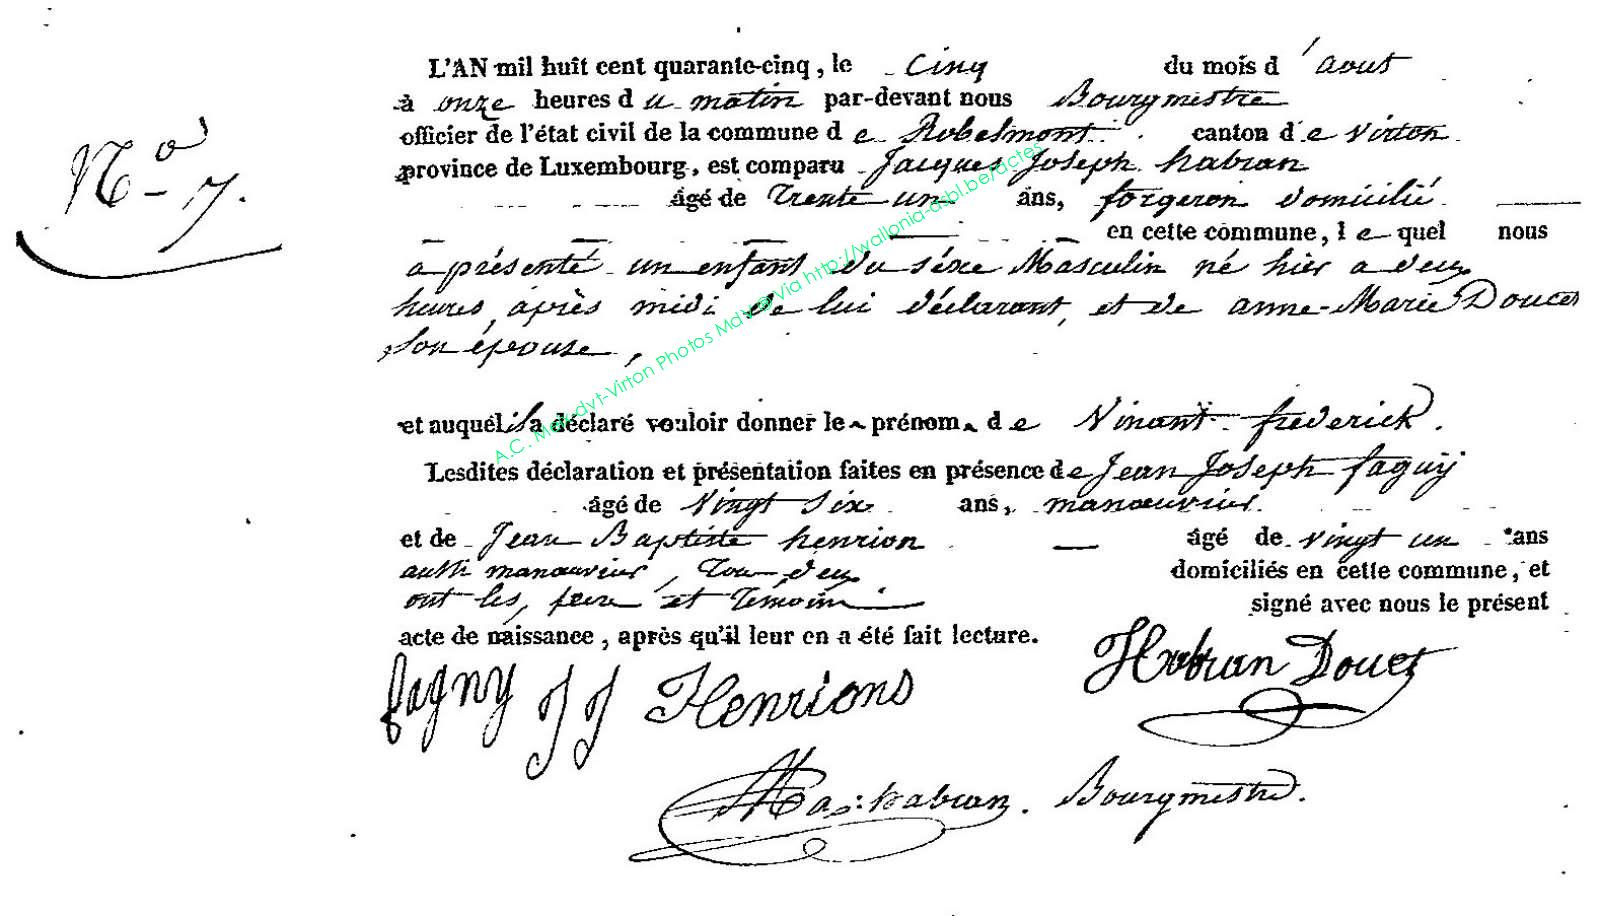 L'AN mil huit cent quarante-cinq, le cinq du mois d'aout
à onze heures du matin par-devant nous Bourgmestre
officier de l'état civil de la commune de Robelmont canton de virton
N° 7.
province de Luxembourg, est comparu Jacques Joseph habran
âgé de Trente un ans, forgeron domicilié
en cette commune, lequel nous
a présenté un enfant du séxe Masculin né hier a deux
heures, après midi de lui déclarant, et de anne-Marie Doucet
son épouse,
et auquel il a déclaré vouloir donner le prénom de Vinant frederick.
Lesdites déclaration et présentation faites en présence de Jean Joseph fagny
âgé de vingt six ans, manœuvrier
et de Jean Baptiste henrion âgé de vingt un ans
aussi manœuvrier, Tou deux domiciliés en cette commune, et
ont les, père et Témoin signé avec nous le présent
acte de naissance, après qu'il leur en a été fait lecture.
fagny JJ Henrions Habran Doucet
habran. Bourgmestre.
A.C. Meix-dvt-Virton Photos MdV © Via http://wallonia-asbl.be/actes